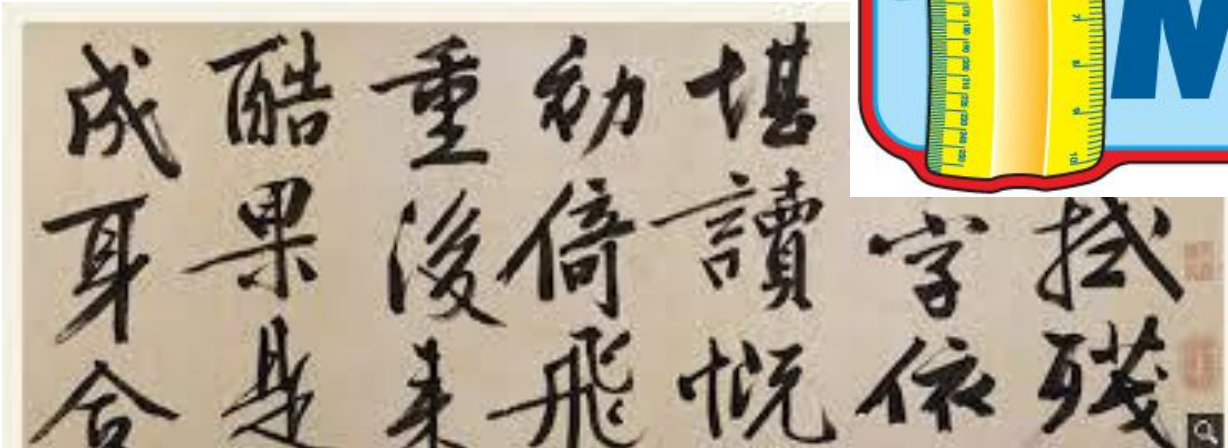 拭殘
字依
堪讀慨
初倚飛
重後来
酷果是
成身合
M